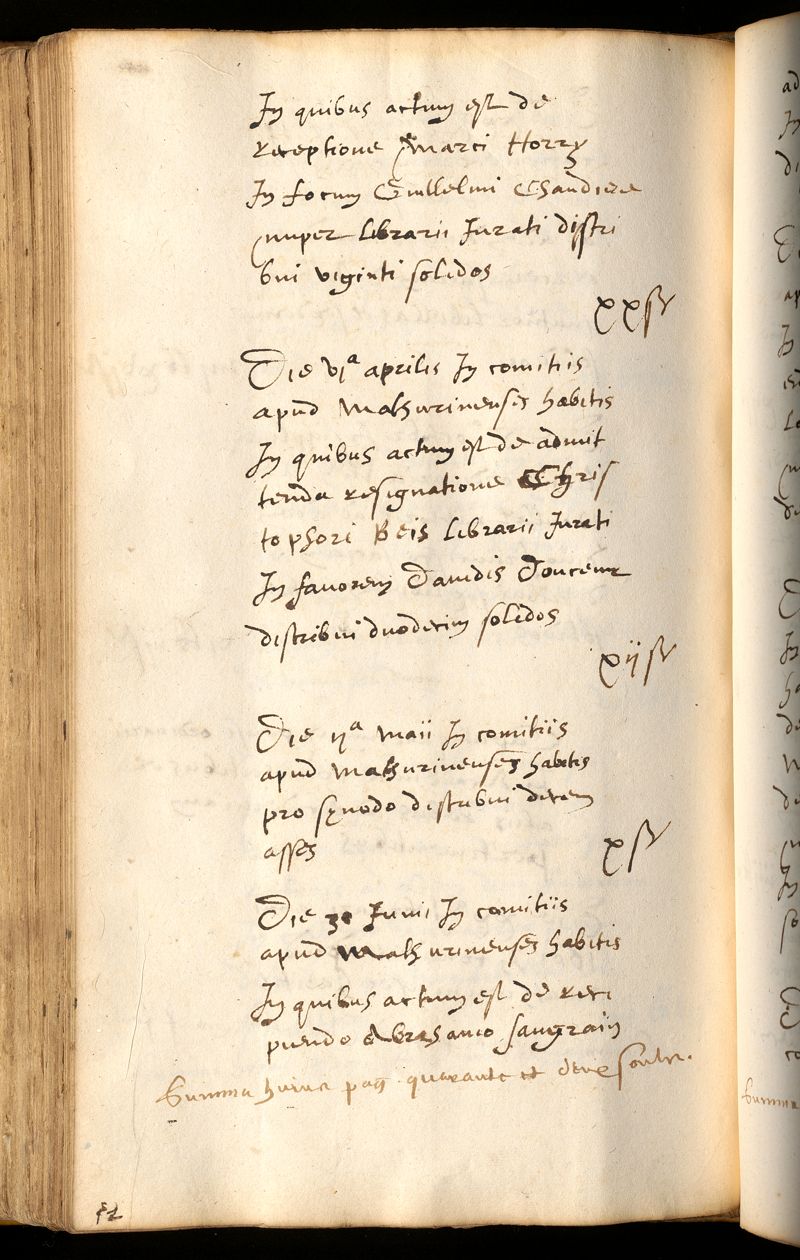 In quibus actum est de
receptione Marci Horry
In locum Guillelmi Chaudiere
nuper librarii Iurati distri
bui viginti solidos
xxs
Die vjª aprilis In comitiis
apud Mathurinenses habitis
In quibus actum est de admit
tenda resignatione Chris
tophori Beis librarii Iurati
In favorem Davidis Douceur
distribui duodecim solidos
xijs
Die ijª Maii In comitiis
apud Mathurinenses habitis
pro synodo distribui decem
asses
xs
Die 3ª Iunii In comitiis
apud Mathurinenses habitis
In quibus actum est de reci
piendo Abrahamo Saugrain
Summa huius pag quarante et deux soulz.